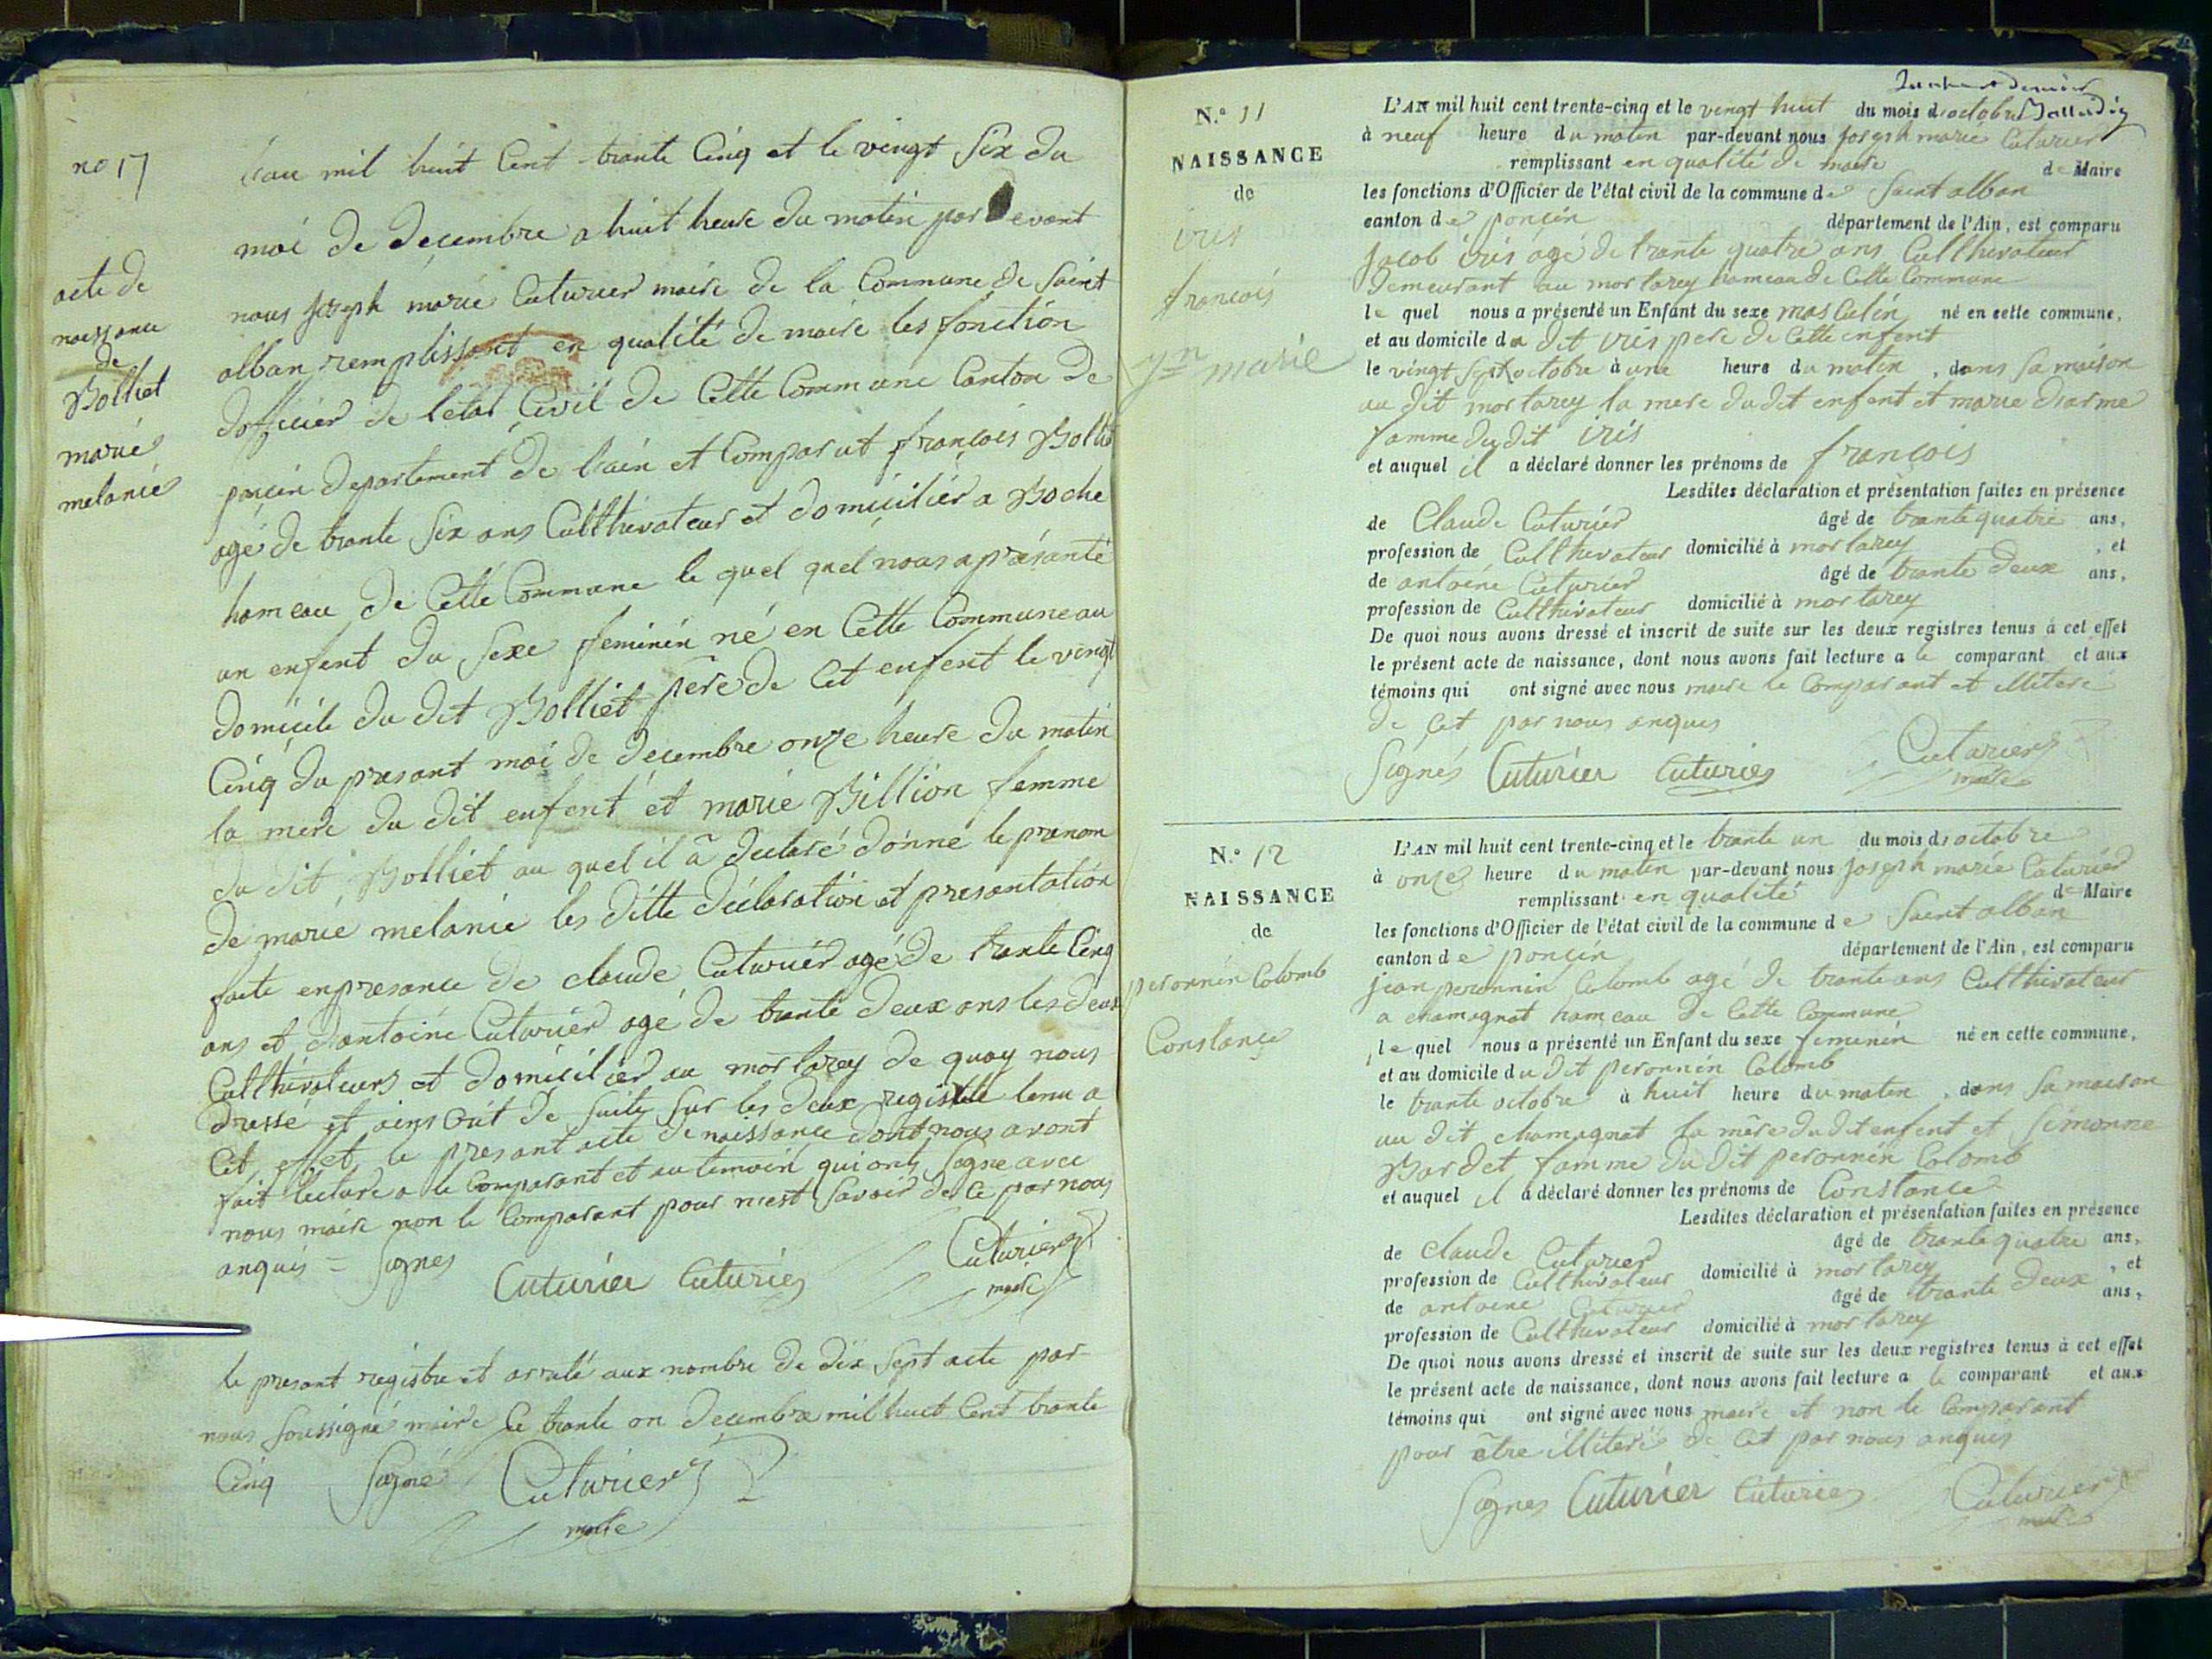 no 17
acte de
naissance
de
Bolliet
marie
melanie
L'an mil huit Cent trante Cinq et le vingt Six du
moi de decembre a huit heure du matin par devant
nous Joseph marie Cuturier maire de la Commune de Saint
alban remplissant en qualité de maire les fonction
dofficier de letat Civil de Cette Commune Canton de
poncin departement de lain et Comparut francois Bollit
agé de trante Six ans Culthivateur et domicilier a Boche
hameau de Cette Commune le quel quel nous a présanté
un enfent du Sexe feminin né en Cette Commune au
domicile du dit Bolliet père de Cet enfent le vingt
Cinq du presant moi de decembre onze heure du matin
la mere du dit enfent et marie Billion femme
du dit Bolliet au quel il a declaré donné le prenom
de marie melanie les ditte déclaration et presentation
faite en presance de claude Cuturier agé de trante Cinq
ans et dantoine Cuturier agé de trante deux ans les deux
Culthivateurs et domicilier au mortarey de quoy nous
dressé et ainscrit de Suite Sur les deux registre tenu a
Cet effet le presant acte de naissance dont nous avont
fait lecture a le Comparant et au temoin qui ont Signe avec
nous maire non le Comparant pour n'est Savoir de Ce par nous
anquis = Signes
Cuturier Cuturier Cuturier
maire
le presant registre et arreté aux nombre de dix Sept acte par
nous Soussigné maire Ce trante un decembre mil huit Cent trante
Cinq Signé Cuturier
maire
N.° 11
NAISSANCE
de
iris
francois
marie
L'AN mil huit cent trente-cinq et le vingt huit du mois d'octobre
à neuf heure du matin par-devant nous Joseph marie Cuturier
remplissant en qualité de maire de Maire
les fonctions d'Officier de l'état civil de la commune de Saint alban
canton de poncin département de l'Ain, est comparu
Jacob iris agé de trante quatre ans Culthivateur
demeurant au mortarey hameau de Cette Commune
le quel nous a présenté un Enfant du sexe masculin né en cette commune,
et au domicile du dit iris pere de Cette enfent
le vingt Sept octobre à une heure du matin, dans Sa maison
au dit mortarey la mere du dit enfent et marie Darme
famme du dit iris
et auquel il a déclaré donner les prénoms de francois
Lesdites déclaration et présentation faites en présence
de Claude Cuturier âgé de trante quatre ans,
profession de Culthivateur domicilié à mortarey, et
de antoine Cuturier âgé de trante deux ans,
profession de Culthivateur domicilié à mortarey
De quoi nous avons dressé et inscrit de suite sur les deux registres tenus à cet effet
le présent acte de naissance, dont nous avons fait lecture a le comparant et aux
témoins qui ont signé avec nous maire le Comparant et illiteré
de Cet par nous anquis
Signés Cuturier Cuturier Cuturier
maire
N.° 12
NAISSANCE
de
peronnin Colomb
Constance
L'AN mil huit cent trente-cinq et le trante un du mois d'octobre
à onze heure du matin par-devant nous Joseph marie Cuturier
remplissant en qualité de Maire
les fonctions d'Officier de l'état civil de la commune de Saint alban
canton de poncin département de l'Ain, est comparu
jean peronnin Colomb agé de trante ans Culthivateur
a chamagnat hameau de Cette Commune
le quel nous a présenté un Enfant du sexe feminin né en cette commune,
et au domicile du dit peronnin Colomb
le trante octobre à huit heure du matin, dans Sa maison
au dit chamagnat la mère du dit enfent et Simonne
Bardet famme du dit peronnin Colomb
et auquel il a déclaré donner les prénoms de Constance
Lesdites déclaration et présentation faites en présence
de Claude Cuturier âgé de trante quatre ans,
profession de Culthivateur domicilié à mortarey, et
de antoine Cuturier âgé de trante deux ans,
profession de Culthivateur domicilié à mortarey
De quoi nous avons dressé et inscrit de suite sur les deux registres tenus à cet effet
le présent acte de naissance, dont nous avons fait lecture a le comparant et aux
témoins qui ont signé avec nous maire et non le Comparant
pour être illiteré de Cet par nous anquis
Signes Cuturier Cuturier Cuturier
maire